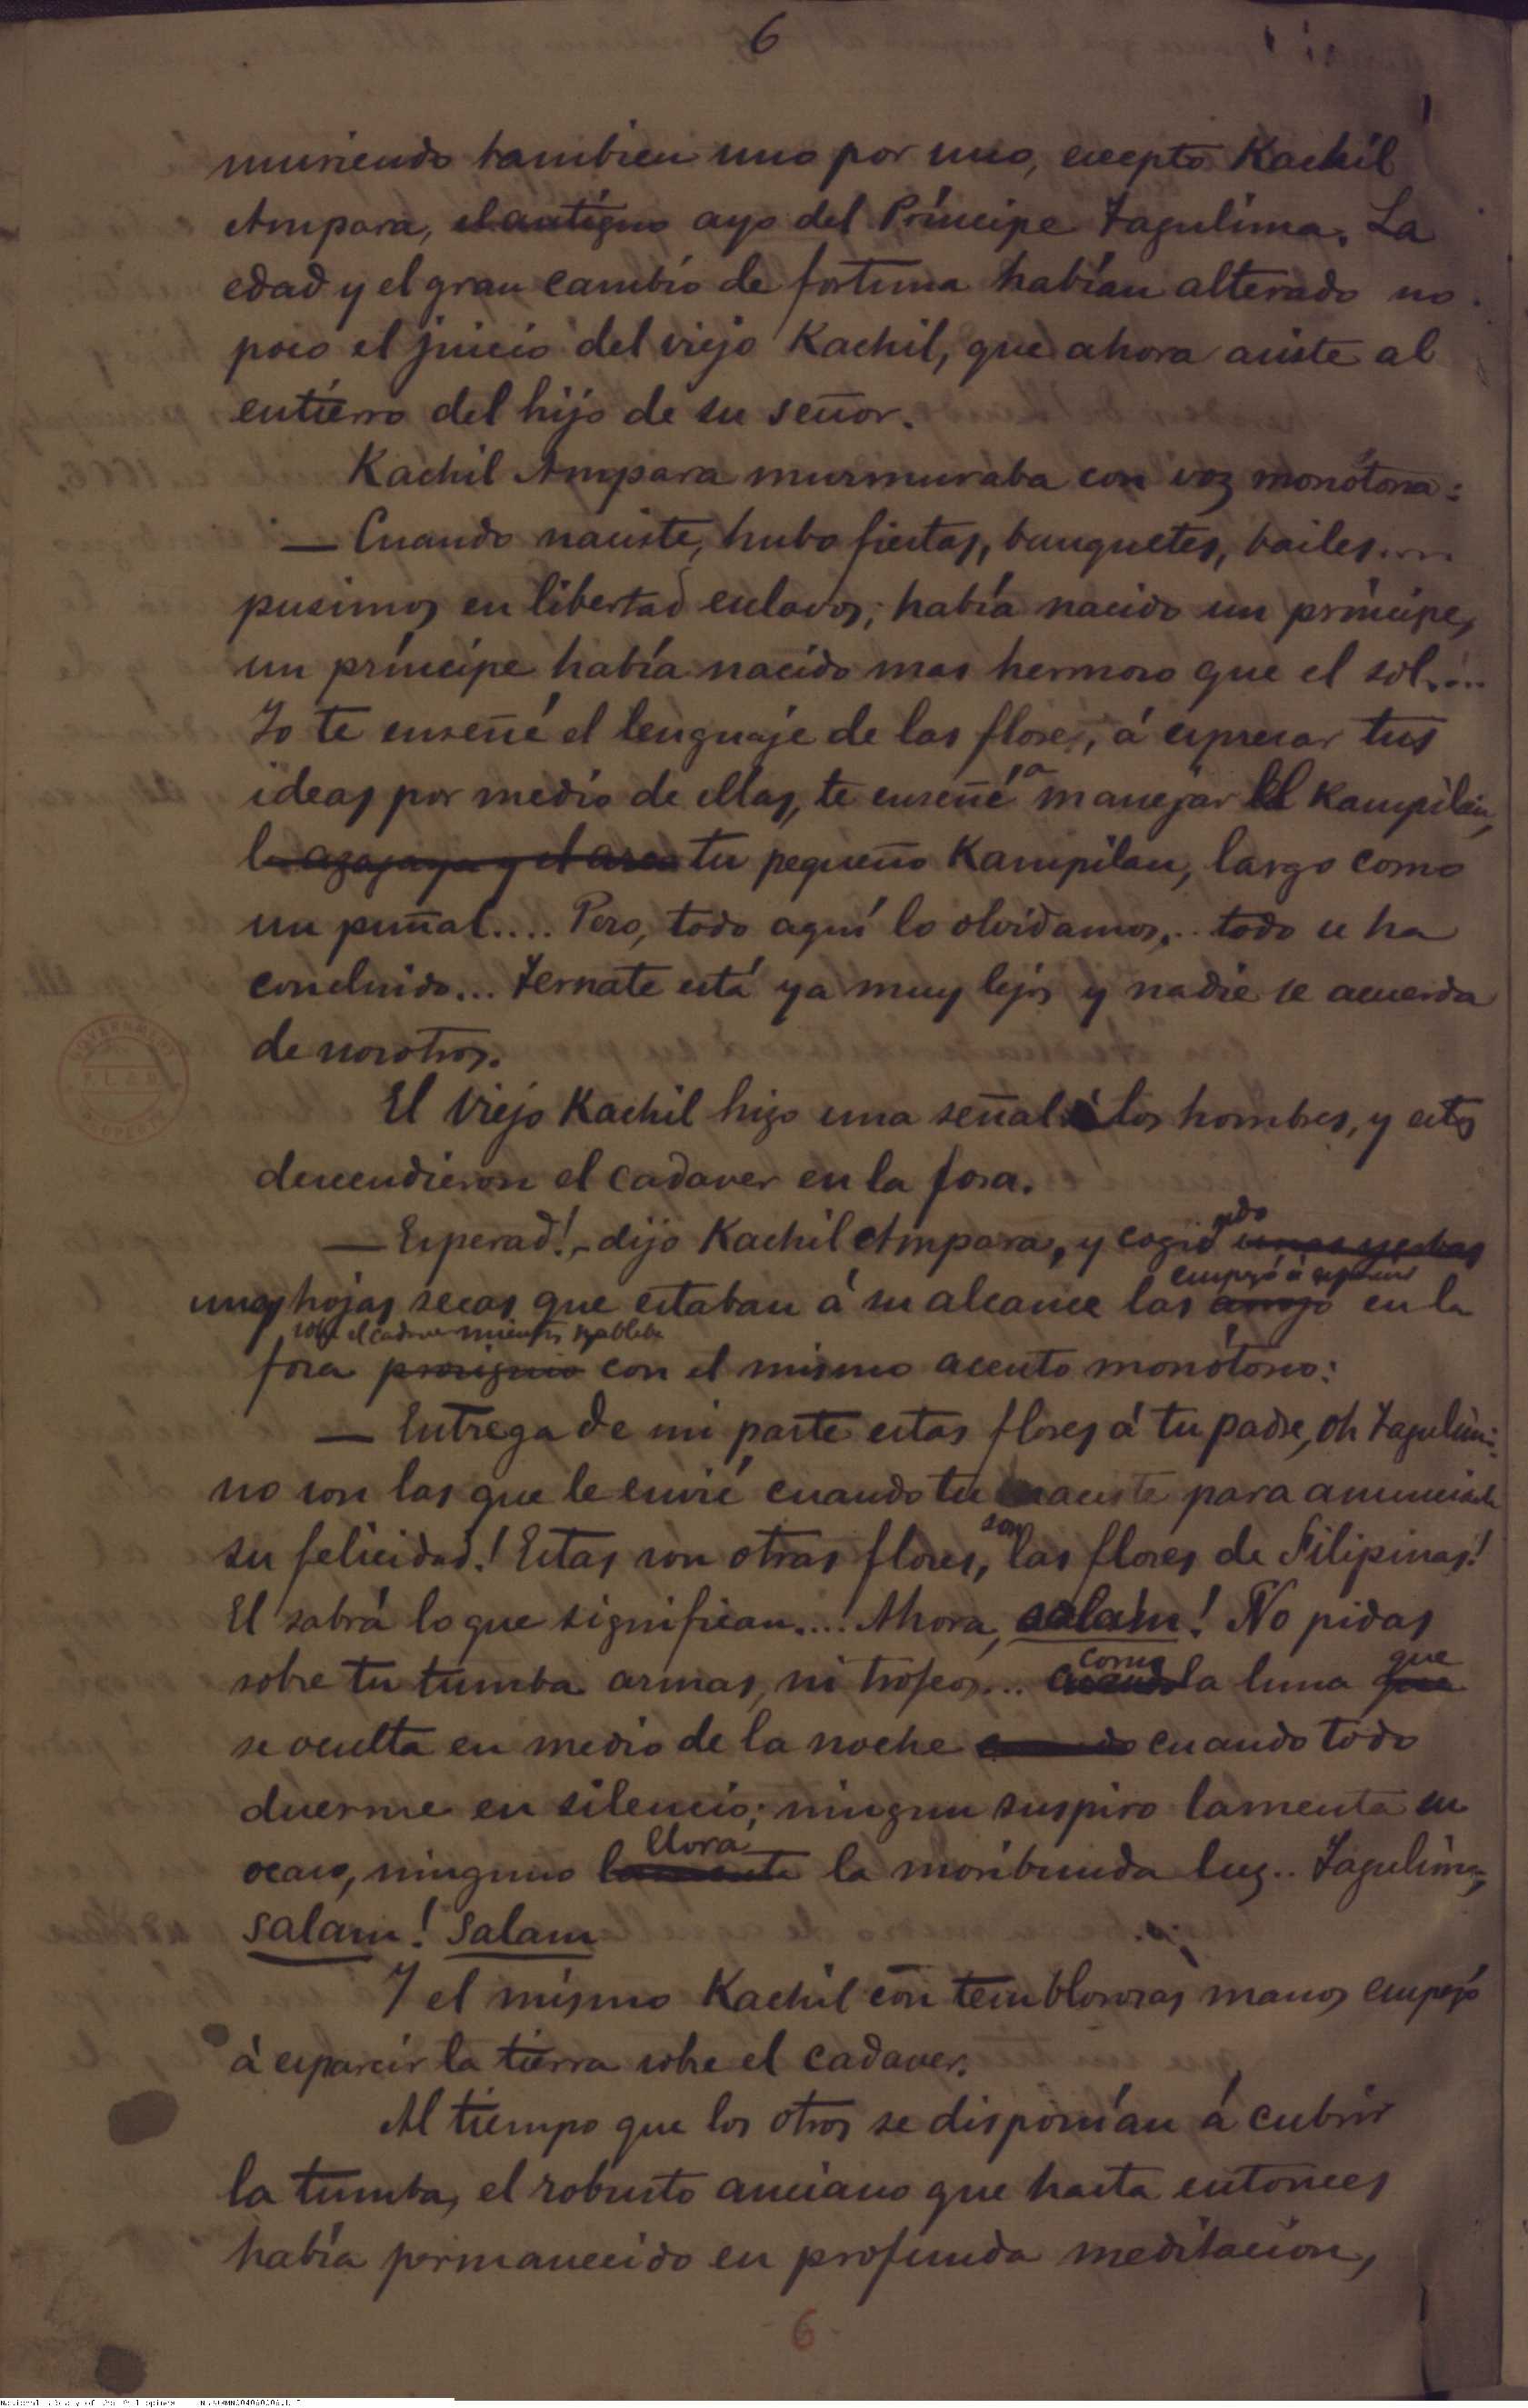 6
muriendo tambien uno por uno, ecepto Kachil
Ampara, el antiguo ayo del Príncipe Tagulima. La
edad y el gran cambio de fortuna habían alterado no
poco el juicio del viejo Kachil, que ahora asiste al
entierro del hijo de su señor.
Kachil Ampara murmuraba con voz monótona:
— Cuando naciste, hubo fiestas, banquetes, bailes....
pusimos en libertad esclavos; había nacido un príncipe,
un príncipe había nacido mas hermoso que el sol....
Yo te enseñé el lenguaje de las flores, á espresar tus
ideas por medio de ellas, te enseñé a manejar el Kampilan,
la azagaya y el arco tu pequeño Kampilan, largo como
un puñal.... Pero, todo aquí lo olvidamos,.. todo se ha
concluido... Ternate está ya muy lejos y nadie se acuerda
de nosotros.
El viejo Kachil hizo una señal á los hombres, y estos
descendieron el cadaver en la fosa.
— Esperad!, - dijo Kachil Ampara, y cogió unas yerbas
unas hojas secas que estaban á su alcance las empezó á esparcir arrojó en la
sobre el cadaver mientras hablaba
fosa prosiguió con el mismo acento monótono:
— Entrega de mi parte estas flores á tu padre, oh Tagulima:
no son las que le envié cuando tu naciste para anunciarle
su felicidad! Estas son otras flores, son las flores de Filipinas!
El sabrá lo que significan....! Ahora, salam! No pidas
sobre tu tumba armas, ni trofeos... como la luna que
se oculta en medio de la noche cuando todo
duerme en silencio; ningun suspiro lamenta su
ocaso, ninguno lamenta llora la moribunda luz.. Tagulima,
salam! salam
Y el mismo Kachil con temblorosas manos empezó
á esparcir la tierra sobre el cadaver.
Al tiempo que los otros se disponían á cubrir
la tumba, el robusto anciano que hasta entonces
había permanecido en profunda meditacion,
6